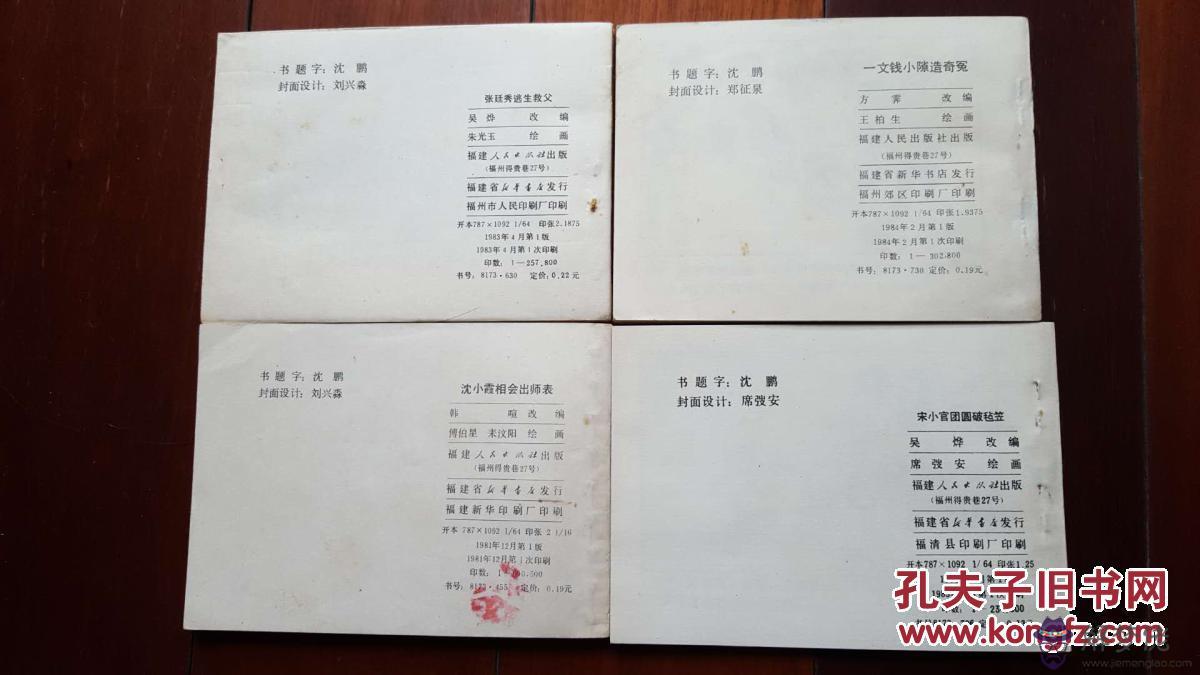 书题字：沈鹏
封面设计：刘兴淼
张廷秀逃生救父
吴烨 改编
朱光玉 绘画
福建人民出版社出版
（福州得贵巷27号）
福建省新华书店发行
福州市人民印刷厂印刷
开本787×1092 1/64 印张2.1875
1983年4月第1版
1983年4月第1次印刷
印数：1—257,800
书号：8173·630 定价：0.22元
书题字：沈鹏
封面设计：郑征泉
一文钱小隙造奇冤
方霁 改编
王柏生 绘画
福建人民出版社出版
（福州得贵巷27号）
福建省新华书店发行
福州郊区印刷厂印刷
开本787×1092 1/64 印张1.9375
1984年2月第1版
1984年2月第1次印刷
印数：1—302,800
书号：8173·730 定价：0.19元
书题字：沈鹏
封面设计：刘兴淼
沈小霞相会出师表
韩喧改编
傅伯星 耒汶阳 绘画
福建人民出版社出版
（福州得贵巷27号）
福建省新华书店发行
福建新华印刷厂印刷
开本 787×1092 1/64 印张 2 1/16
1981年12月第1版
1981年12月第1次印刷
印数：1—
书号：8173·455 定价：0.19元
书题字：沈鹏
封面设计：席弢安
宋小官团圆破毡笠
吴烨改编
席弢安 绘画
福建人民出版社出版
（福州得贵巷27号）
福建省新华书店发行
福清县印刷厂印刷
开本787×1092 1/64 印张1.25
孔夫子旧书网
www.kongfz.com
www.jiemenglao.com